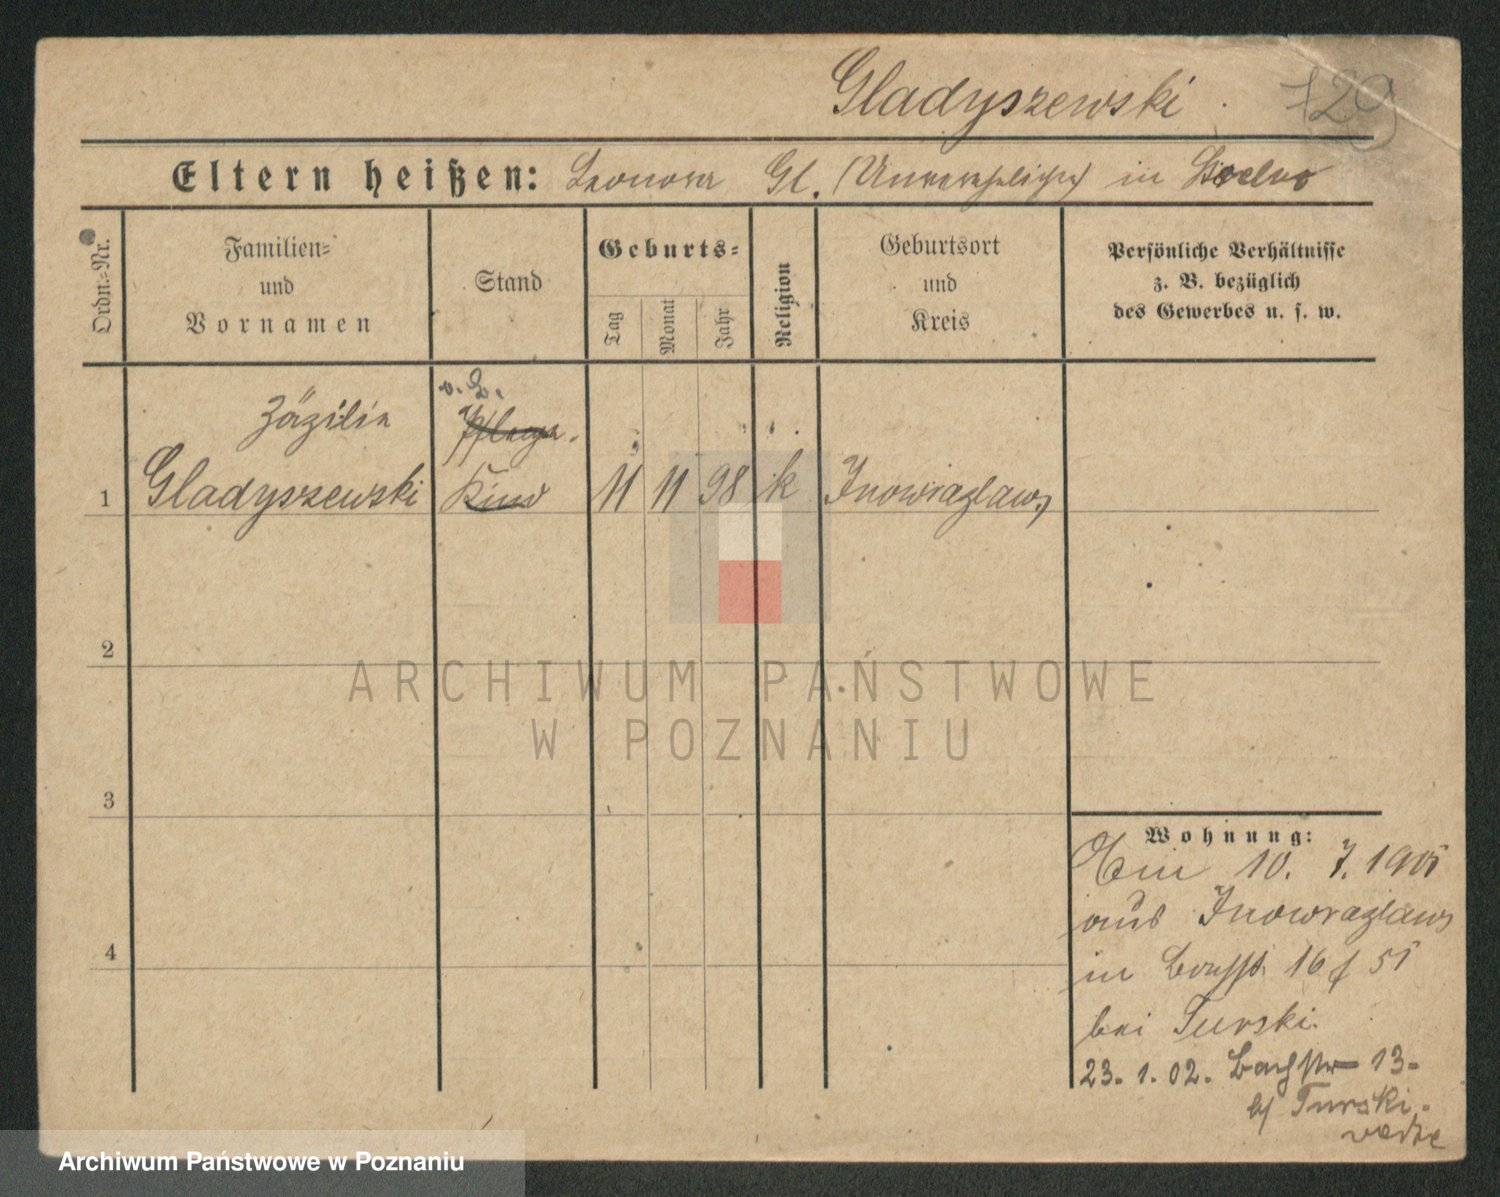 Gladyszewski
129
Eltern heißen: Leonora Gl. (Unverehelichte) in
Ordn.=Nr.
Familien=
und
Vornamen
Stand
Geburts=
Tag
Monat
Jahr
Religion
Geburtsort
und
Kreis
Persönliche Verhältnisse
z. B. bezüglich
des Gewerbes u. s. w.
Zäzilie
Pflege
1 Gladyszewski Kind 11 11 98 k Inowrazlaw
2
3
4
Wohnung:
10. 7. 1901
aus Inowrazlaw
in 16
bei Turski.
23. 1. 02. Bachstr 13.
b/ Turski.
ARCHIWUM PAŃSTWOWE
W POZNANIU
Archiwum Państwowe w Poznaniu